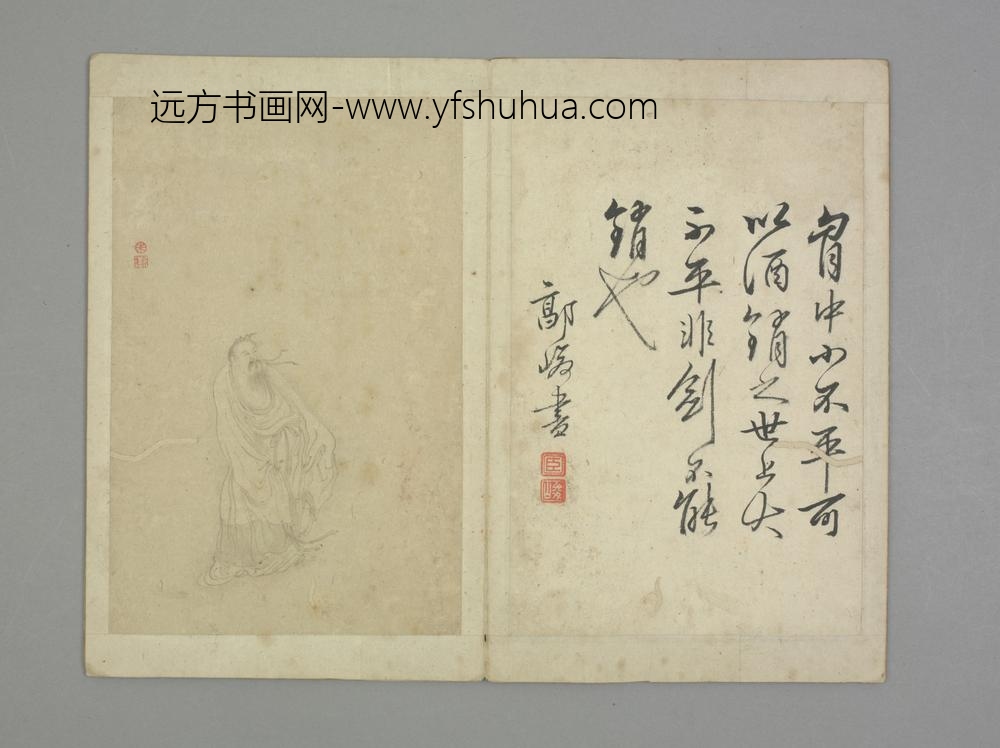 远方书画网-www.yfshuhua.com
胷中小不平可
以酒销之世上大
不平非剑不能
销也
鄗峻书
臣
峻